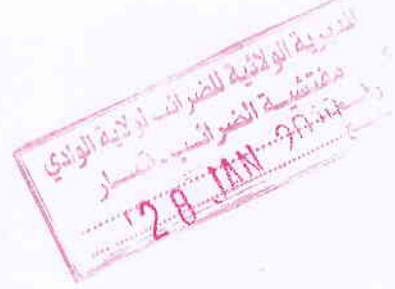 المديرية الولائية للضرائب لولاية الوادي
مفتشية الضرائب -
28 JAN